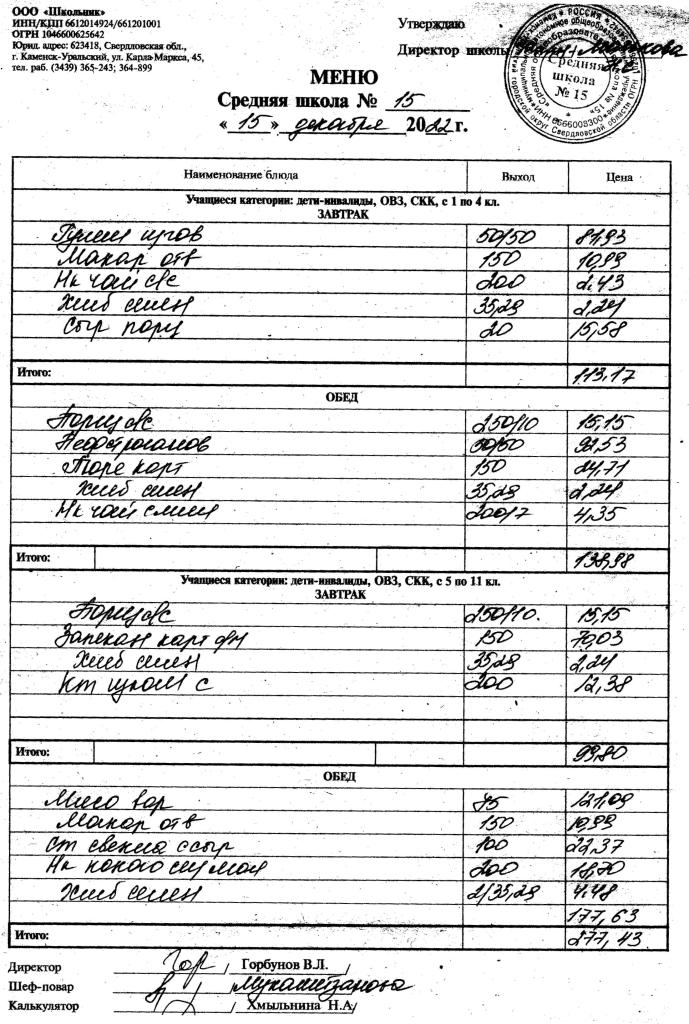 ООО «Школьник»
ИНН/КПП 6612014924/661201001
ОГРН 1046600625642
Юрид. адрес: 623418, Свердловская обл.,
г. Каменск-Уральский, ул. Карла Маркса, 45,
тел. раб. (3439) 365-243; 364-899
Утверждаю
Директор школы
Средняя
школа
№ 15
МЕНЮ
Средняя школа № 15
« 15 » декабря 2022 г.
Наименование блюда Выход Цена
Учащиеся категории: дети-инвалиды, ОВЗ, СКК, с 1 по 4 кл.
ЗАВТРАК
50/50 81,93
Макар отв 150 10,99
Нк чай с/с 200 2,43
Хлеб 35,28 2,24
Сыр порц 20 15,58
Итого: 113,17
ОБЕД
Борщ 250/10 15,15
Бефстроганов 50/50 92,53
Пюре карт 150 24,71
Хлеб 35,28 2,24
Нк чай 200/7 4,35
Итого: 138,98
Учащиеся категории: дети-инвалиды, ОВЗ, СКК, с 5 по 11 кл.
ЗАВТРАК
Борщ 250/10. 15,15
Запекан карт 150 70,03
Хлеб 35,28 2,24
200 12,38
Итого: 99,80
ОБЕД
Мясо 121,09
Макар отв 150 10,99
свекла 100 22,37
Нк какао 200 18,70
Хлеб 2/35,28 4.48
177,63
Итого: 277,43
Директор / Горбунов В.Л. /
Шеф-повар /
Калькулятор / Хмыльнина Н.А/